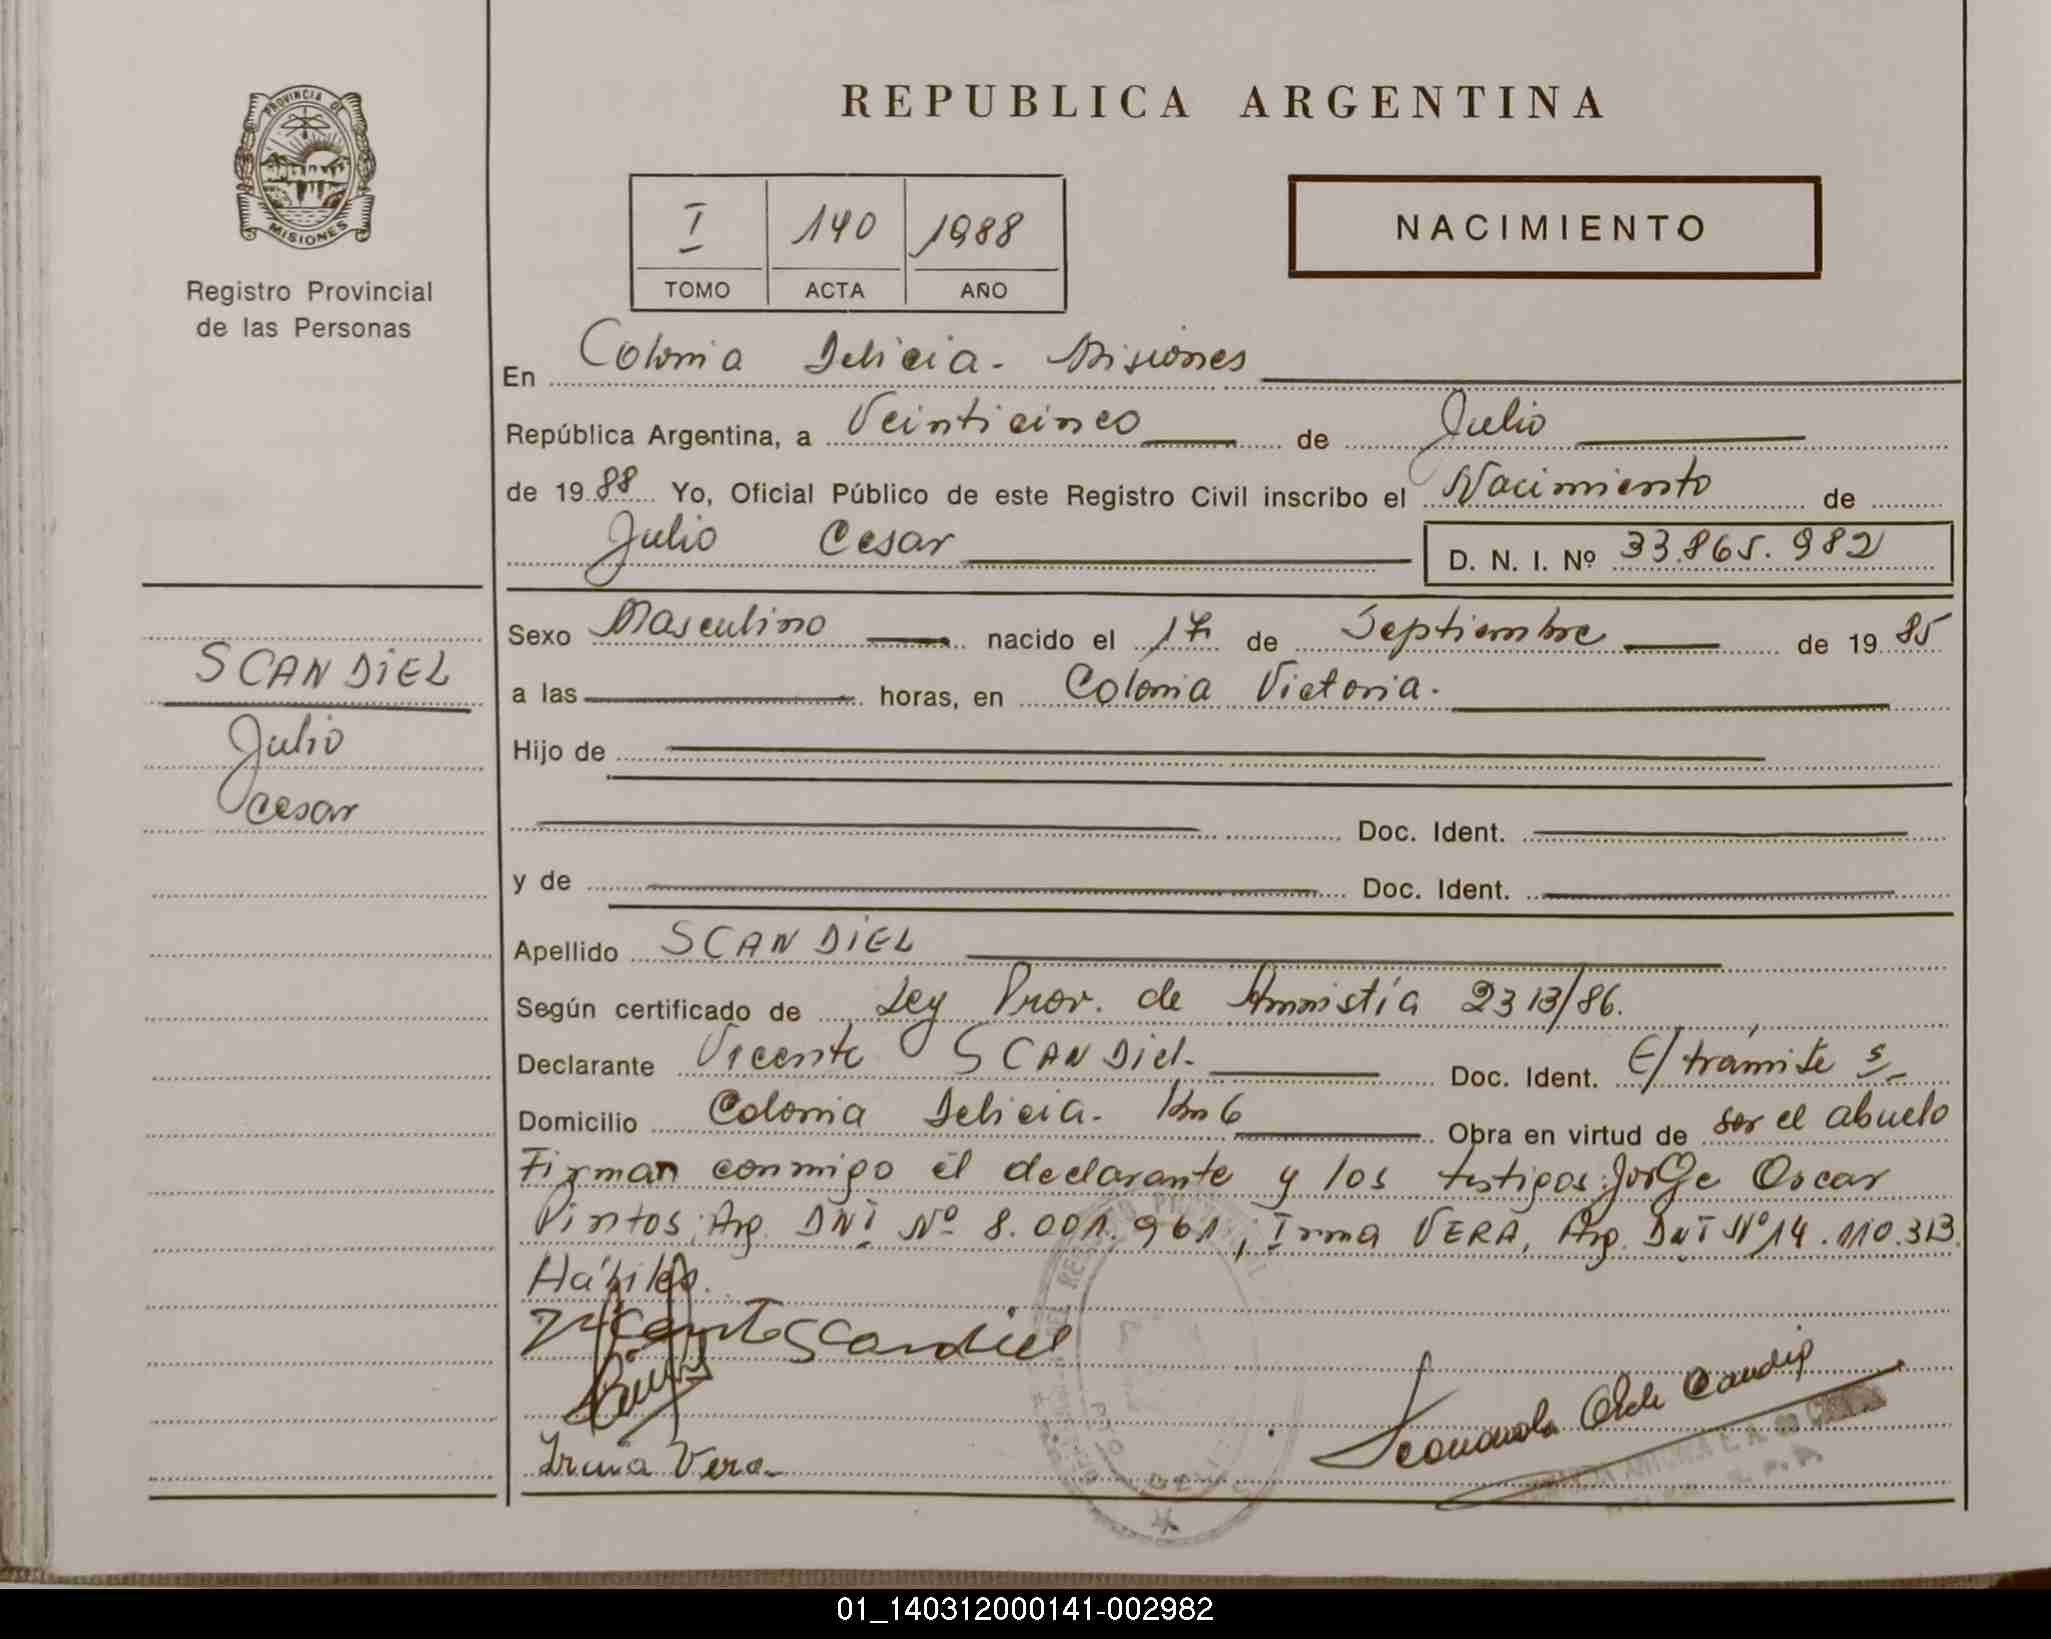 PROVINCIA DE
MISIONES
Registro Provincial
de las Personas
REPUBLICA ARGENTINA
I 140 1988
TOMO ACTA AÑO
NACIMIENTO
En Colonia Delicia - Misiones
República Argentina, a Veinticinco de Julio
de 1988 Yo, Oficial Público de este Registro Civil inscribo el Nacimiento de
Julio Cesar D. N. I. Nº 33.865.982
Sexo Masculino nacido el 17 de Septiembre de 1985
a las horas, en Colonia Victoria.
Hijo de
Doc. Ident.
y de Doc. Ident.
SCANDiEL
Julio
Cesar
Apellido SCANDiEL
Según certificado de Ley Prov. de Amnistía 2313/86.
Declarante Vicente SCANDiel- Doc. Ident. E/trámite s/
Domicilio Colonia Delicia - Km 6 Obra en virtud de ser el abuelo
Firman conmigo el declarante y los testigos: JorGe Oscar
Pintos; Arg. DNI Nº 8.001.961; Irma VERA, Arg. DNI Nº 14.110.313.
Hábiles.
Vicente Scandiel
Irma Vera
01_140312000141-002982